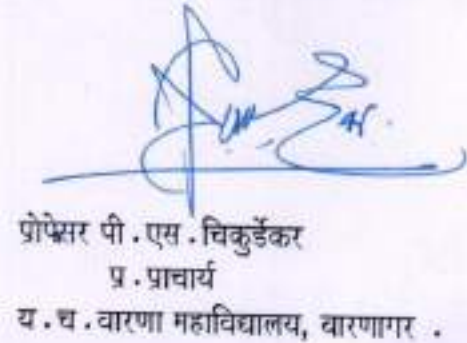 प्रोफेसर पी.एस.चिकुर्डेकर
प्र.प्राचार्य
य.च.वारणा महाविद्यालय, वारणागर .